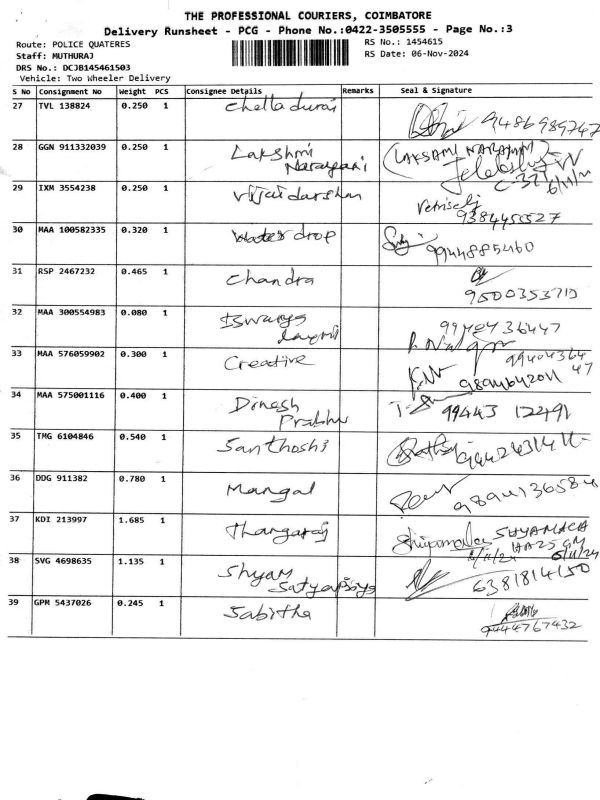 THE PROFESSIONAL COURIERS, COIMBATORE
Delivery Runsheet - PCG - Phone No.:0422-3505555 - Page No.:3
Route: POLICE QUATERES
RS No.: 1454615
Staff: MUTHURAJ
RS Date: 06-Nov-2024
DRS No.: DCJB145461503
Vehicle: Two Wheeler Delivery
S No Consignment No Weight PCS Consignee Details Remarks Seal & Signature
27 TVL 138824 0.250 1 Chella durai
9486989747
28 GGN 911332039 0.250 1 Lakshmi Narayani (LAKSAMI NARAYANI)
C-327
29 IXM 3554238 0.250 1 Vijai darshan
Vetriselvi
9384450527
30 MAA 100582335 0.320 1 Water drop 9944885460
31 RSP 2467232 0.465 1 Chandra
9500353710
32 MAA 300554983 0.080 1 Iswarya
33 MAA 576059902 0.300 1 Creative
34 MAA 575001116 0.400 1 Dinesh Prabhu 99443 12491
35 TMG 6104846 0.540 1 Santhoshi
36 DDG 911382 0.780 1 Mangal
9894136584
37 KDI 213997 1.685 1 Thangaraj Shyamala SHYAMALA
6/11/24
38 SVG 4698635 1.135 1 Shyam
6381814150
39 GPM 5437026 0.245 1 Sabitha
9444767432